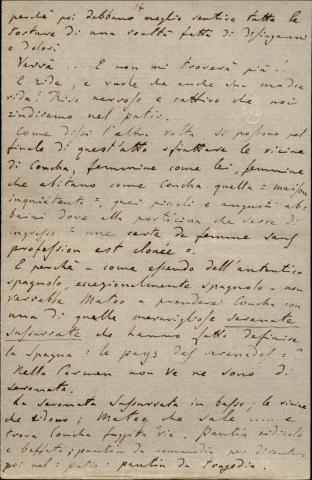 14
perchè poi debbano meglio sentire tutte le
torture di una realtà fatta di disinganni
e dolori.
Verrà .... E non mi troverà più!..
E ride, e vuole che anche sua madre
rida! Riso nervoso e cattivo che noi
udiremo nel patio.
Come dissi l'altra volta si possono pel
finale di quest'atto sfruttare le vicine
di Concha, femmine come lei, femmine
che abitano come Concha quella = maison
inquiétante =, quei piccoli e angusti ab-
baini dove alla porticina che serve di
ingresso = une carte de femme sans
profession est clouée =.
E perchè - come essendo dell'autentico
spagnolo, eccezionalmente spagnolo - non
verrebbe Mateo a prendere Concha con
una di quelle meravigliose serenate
sussurrate che hanno fatto definire
la Spagna: le pays des serenades = ?
Nella Carmen non ve ne sono di
serenate.
La serenata sussurrata in basso; le vicine
che ridono; Mateo che sale ..... e
trova Concha fuggita via. Pantin ridicolo
e beffato; pantin da commedia per diventare
poi nel = patio = pantin da tragedia.